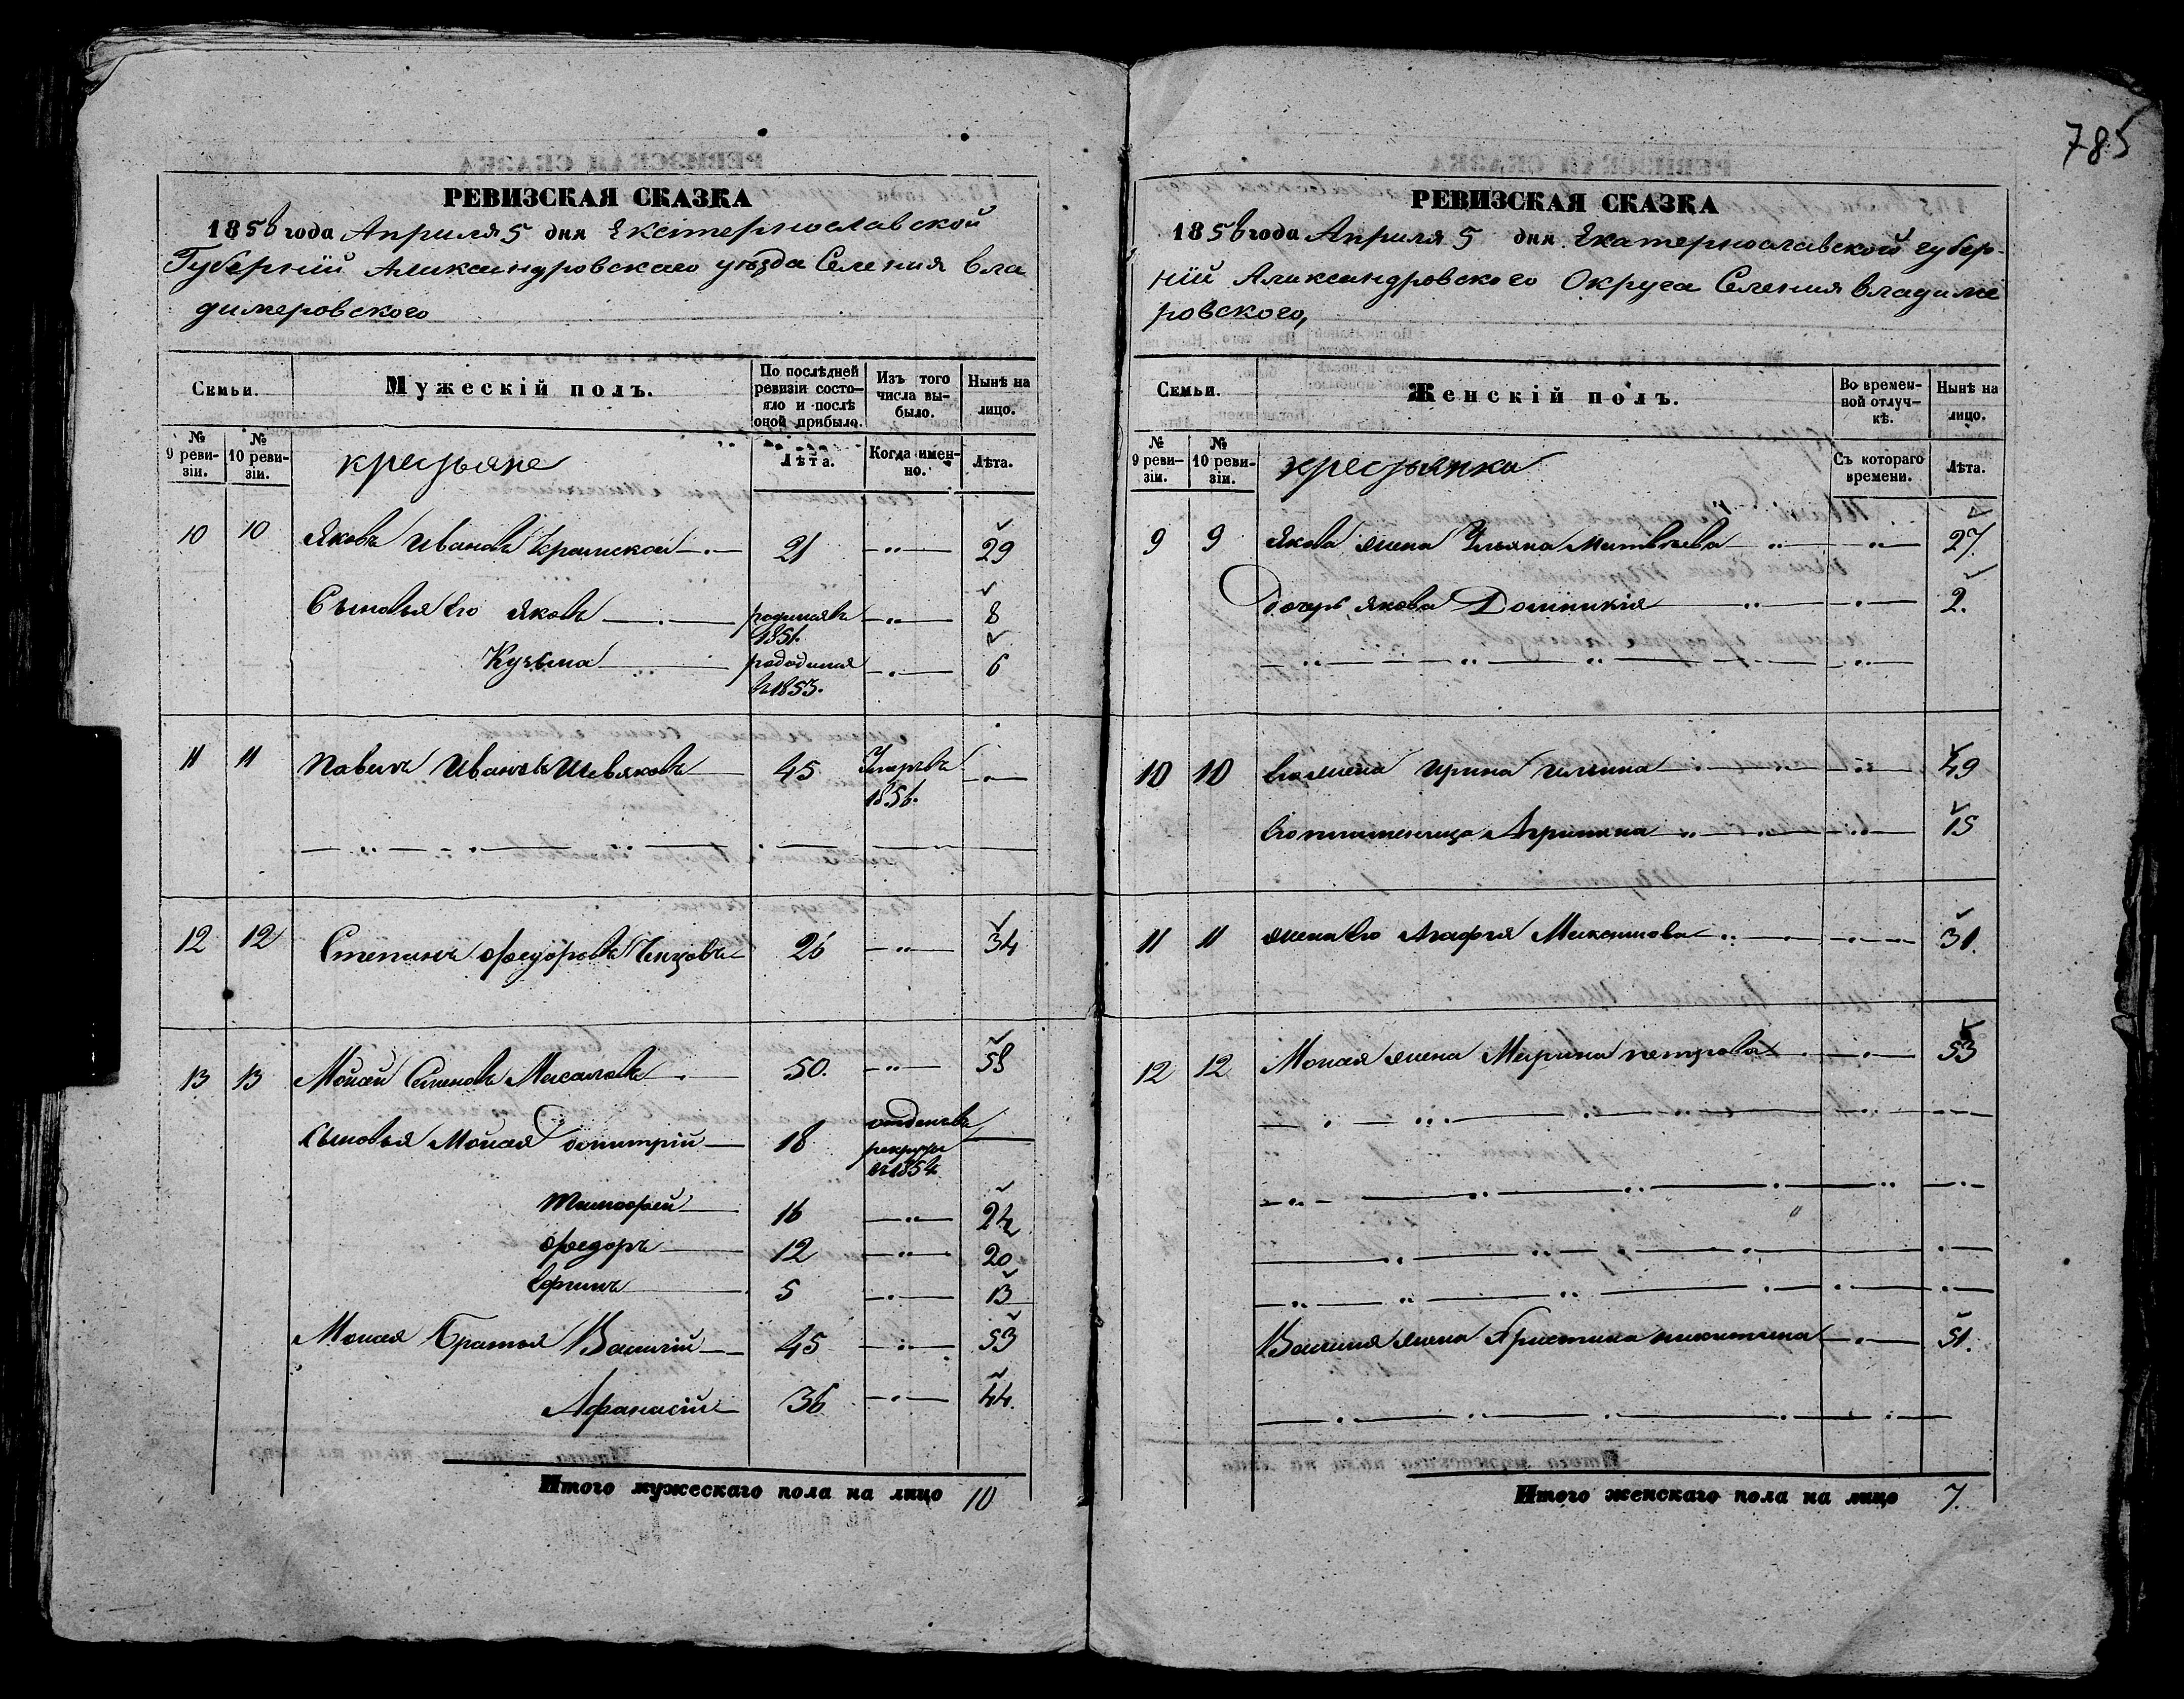 785
РЕВИЗСКАЯ СКАЗКА
1856 года Апреля 5 дня Екатернославской
Губерніи Александровскаго уѣзда Селения Вла
димеровского
Семьи.
Мужескій полъ.
По послѣдней ревизіи состояло и послѣ оной прибыло.
Изъ того числа выбыло.
Нынѣ на лицо.
№ 9 ревизіи.
№ 10 ревизіи.
крестьяне
Лѣта.
Когда именно.
Лѣта.
10 10 Яковъ Ивановъ 21 29
Сыновья его Яковъ 1851. 8
Кузьма 6
въ 1853.
11 11 Павелъ Ивановъ Шевяковъ 45 Умеръ въ
1856.
12 12 Степанъ Федоровъ 26 34
13 13 Моисей Семеновъ Масаловъ 50. 58
Сыновья Моисея Дмитрій 18 отданъ въ
рекруты
въ 1854
Тимофей 16 24
Федоръ 12 20
Ефимъ 5 13
Моисея Братья Василій 45 53
Афанасій 36 44.
Итого мужескаго пола на лицо 10
РЕВИЗСКАЯ СКАЗКА
1856 года Апреля 5 дня Екатернославской губер-
ніи Александровского Округа Селения Владиме
ровского,
Семьи.
Женскій полъ.
Во временной отлучкѣ.
Нынѣ на лицо.
№ 9 ревизіи.
№ 10 ревизіи.
крестьянки
Съ котораго времени.
Лѣта.
9 9 Якова жена Ульяна Матвѣева 27
Дочерь Якова Домникия 2.
10 10 Его жена Ирина 49
Его племеница Агрипина 15
11 11 жена его Агафия Максимова 31.
12 12 Моисея жена Марина петрова 53
Василия жена Христина никитина 51.
Итого женскаго пола на лицо 7.